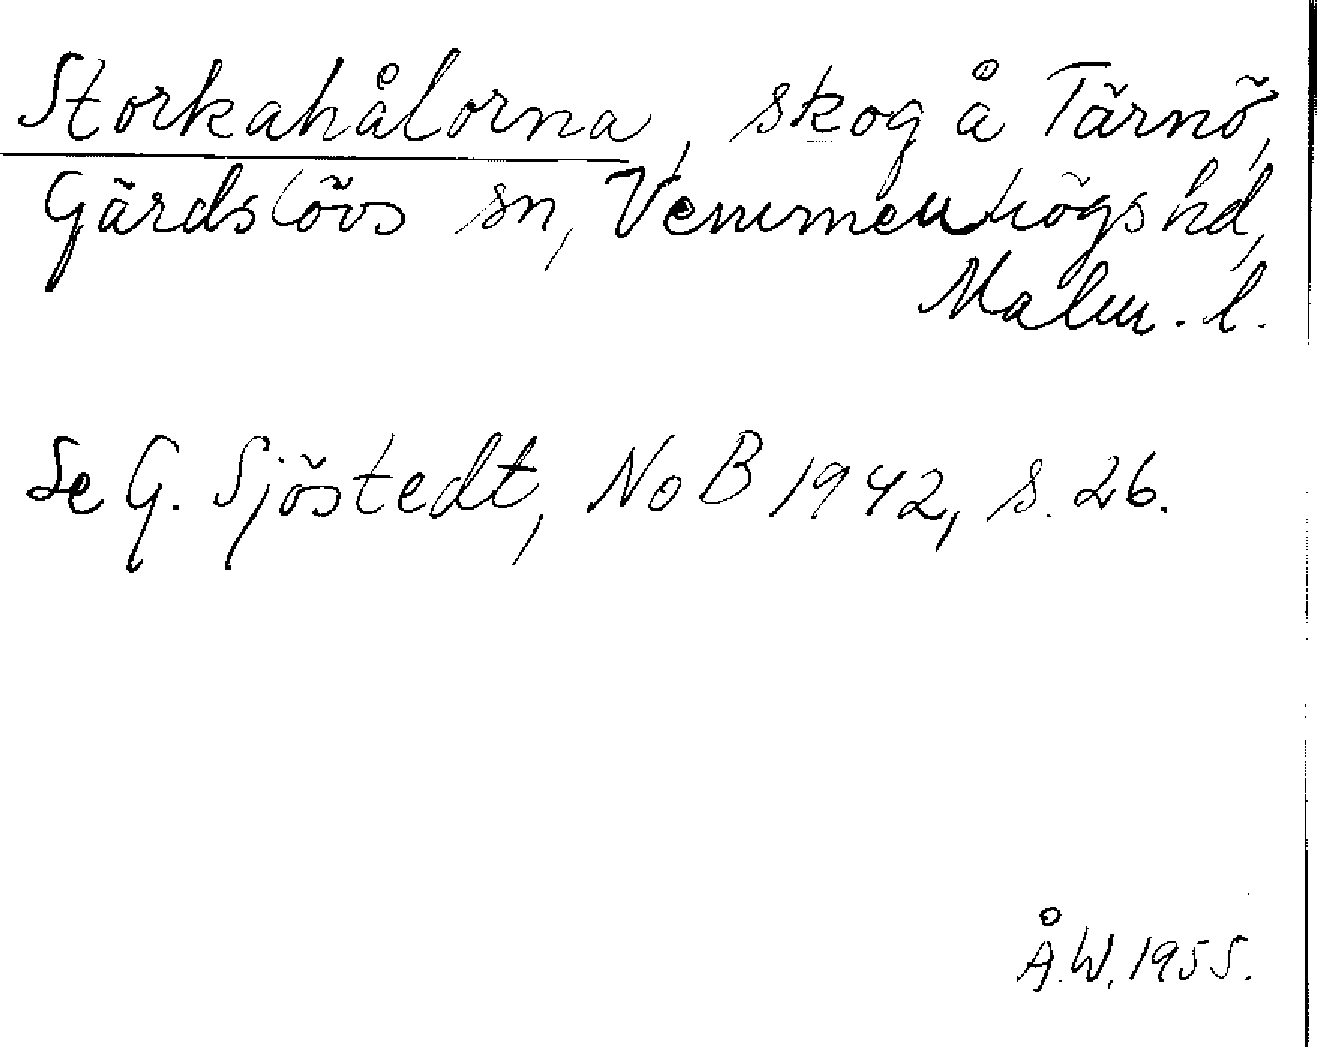 Storkahålorna, skog å Tärnö,
Gärdslövs sn, Vemmenhögs hd,
Malm. l.
Se G. Sjöstedt, NoB 1942, s. 26.
Å.W. 1955.